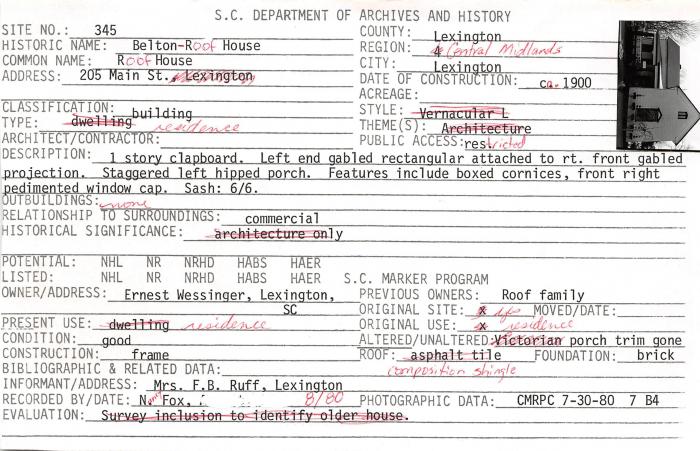 S.C. DEPARTMENT OF ARCHIVES AND HISTORY
SITE NO.: 345 COUNTY: Lexington
HISTORIC NAME: Belton-Roof House REGION: 4 Central Midlands
COMMON NAME: Roof House CITY: Lexington
ADDRESS: 205 Main St., Lexington DATE OF CONSTRUCTION: ca. 1900
ACREAGE:
CLASSIFICATION: building STYLE: Vernacular L
TYPE: dwelling residence THEME(S): Architecture
ARCHITECT/CONTRACTOR: PUBLIC ACCESS: restricted
DESCRIPTION: 1 story clapboard. Left end gabled rectangular attached to rt. front gabled
projection. Staggered left hipped porch. Features include boxed cornices, front right
pedimented window cap. Sash: 6/6.
OUTBUILDINGS: none
RELATIONSHIP TO SURROUNDINGS: commercial
HISTORICAL SIGNIFICANCE: architecture only
POTENTIAL: NHL NR NRHD HABS HAER
LISTED: NHL NR NRHD HABS HAER S.C. MARKER PROGRAM
OWNER/ADDRESS: Ernest Wessinger, Lexington, PREVIOUS OWNERS: Roof family
SC ORIGINAL SITE: x yes MOVED/DATE:
PRESENT USE: dwelling residence ORIGINAL USE: x residence
CONDITION: good ALTERED/UNALTERED: Victorian porch trim gone
CONSTRUCTION: frame ROOF: asphalt tile FOUNDATION: brick
BIBLIOGRAPHIC & RELATED DATA: composition shingle
INFORMANT/ADDRESS: Mrs. F.B. Ruff, Lexington
RECORDED BY/DATE: N. Fox, 8/80 PHOTOGRAPHIC DATA: CMRPC 7-30-80 7 B4
EVALUATION: Survey inclusion to identify older house.